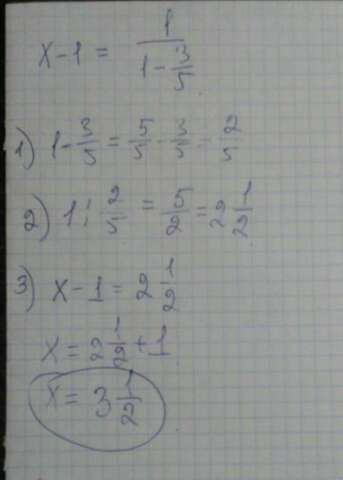 x-1 = 1/(1-3/5)
1) 1-3/5 = 5/5-3/5 = 2/5
2) 1:2/5 = 5/2 = 2 1/2
3) x-1 = 2 1/2
x = 2 1/2 + 1
x = 3 1/2